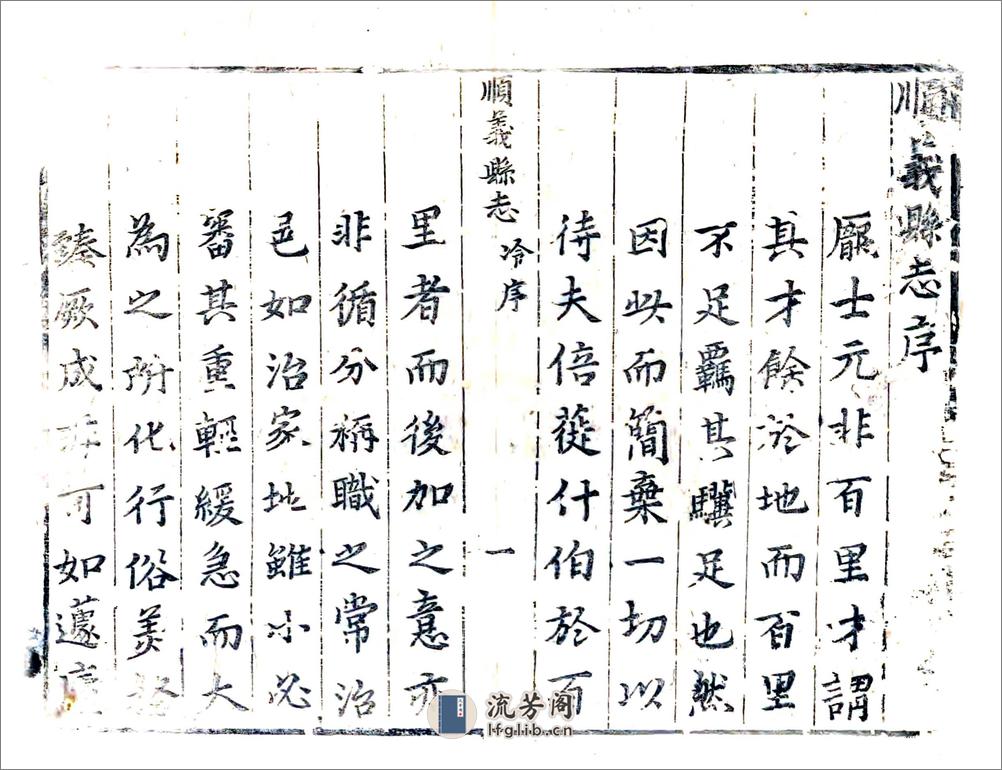 順義縣志序
龐士元非百里才謂
其才餘於地而百里
不足羈其驥足也然
因此而簡棄一切以
待夫倍蓰什伯於百
順義縣志
冷序
一
里者而後加之意亦
非循分稱職之常治
邑如治家地雖小必
審其重輕緩急而大
為之所化行俗美
臻厥成非可如蘧
流芳阁
lfglib.cn